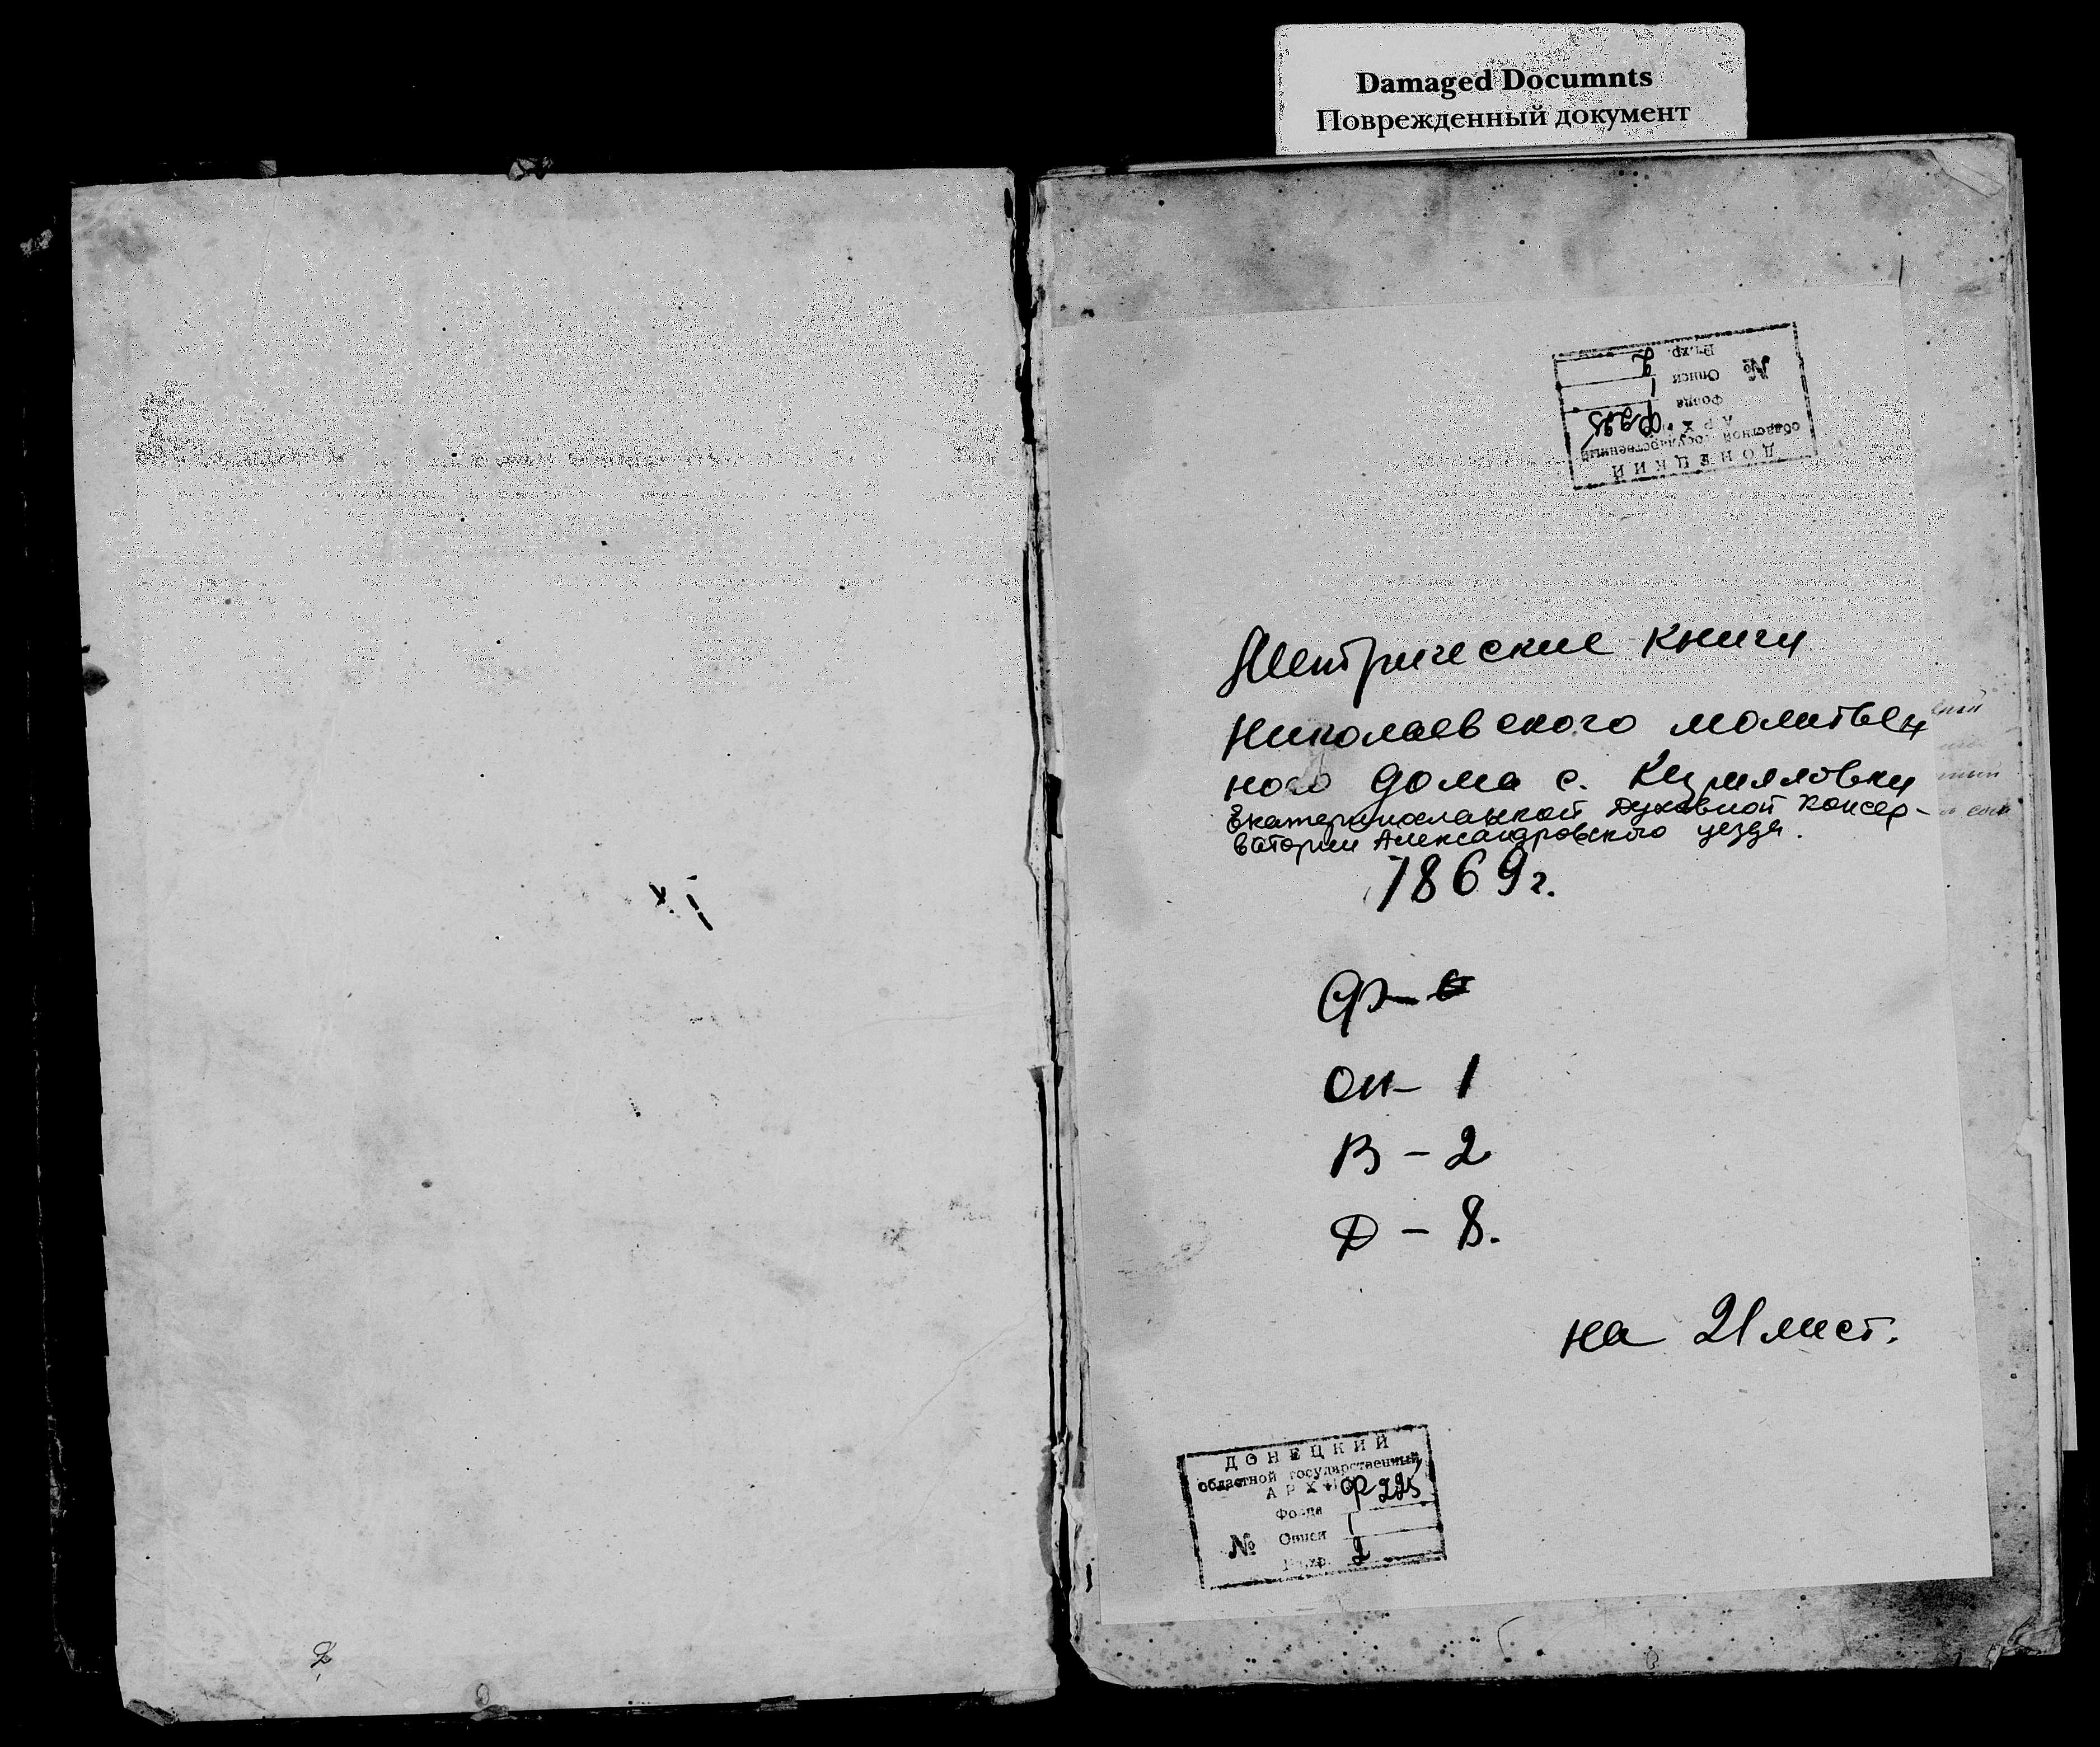 Damaged Documnts
Поврежденный документ
ДОНЕЦКИЙ
областной государственный
АРХИВ
Фонда Ф225
№ Описи 1
Ед.хр. 2
Метрические книги
Николаевского молитвен
ного дома с.
Екатеринославской Духовной Консер-
ватории Александровского уезда.
1869г.
Ф-
оп- 1
В - 2
Д - 8.
на 21 лист.
ДОНЕЦКИЙ
областной государственный
АРХИВ
Фонда Ф225
№ Описи 1
Ед.хр. 2
2